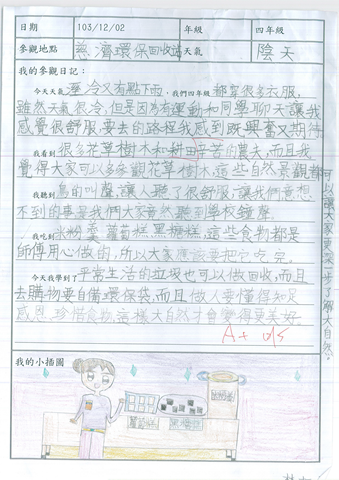 日期 103/12/02 年級 四年級
參觀地點 慈濟環保回收站 天氣 陰天
我的參觀日記：
今天天氣溼冷又有點下雨，我們四年級都穿很多衣服。
雖然天氣很冷，但是因為有運動和同學聊天讓我
感覺很舒服，要去的路程我感到既興奮又期待
我看到很多花草樹木和耕田辛苦的農夫，而且我
覺得大家可以多多觀花草樹木，這些自然景觀都
可以讓大家更深一步了解大自然。
我聽到鳥的叫聲，讓人聽了很舒服，讓我們意想
不到的事是我們大家竟然聽到學校鐘聲。
我吃到米粉羹、蘿蔔糕、黑糖糕，這些食物都是
師傅用心做的，所以大家應該要把它吃完。
今天我學到了平常生活的垃圾也可以做回收，而且
去購物要自備環保袋，而且做人要懂得知足
感恩、珍惜食物，這樣大自然才會變得更美好。
A+
我的小插圖
蘿蔔糕 黑糖糕